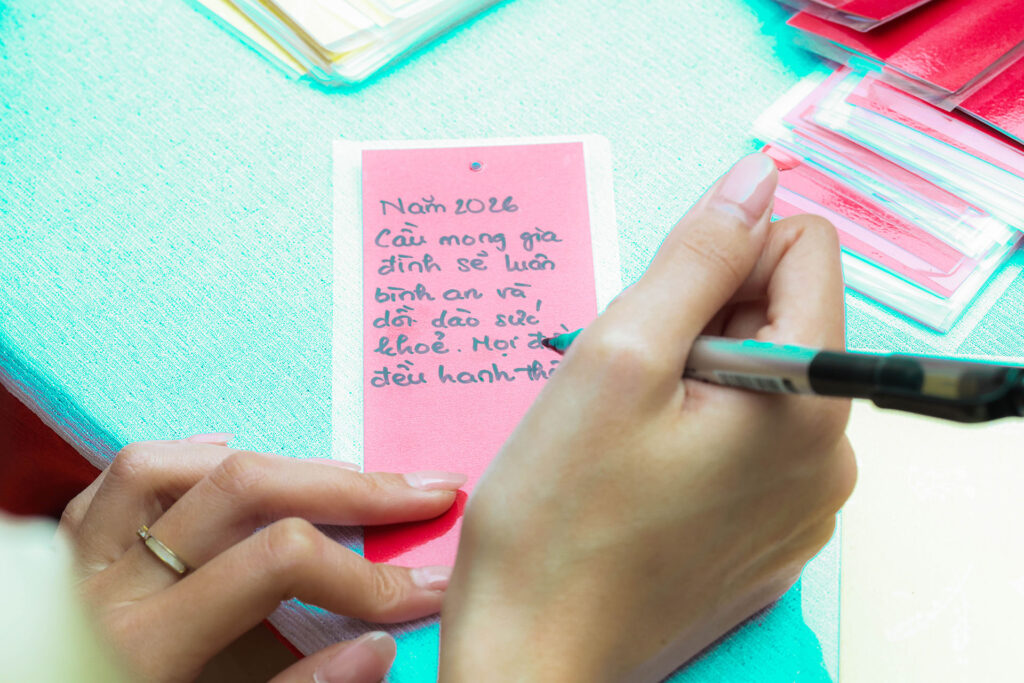 Năm 2026
Cầu mong gia
đình sẽ luôn
bình an và
dồi dào sức
khoẻ. Mọi
đều hanh